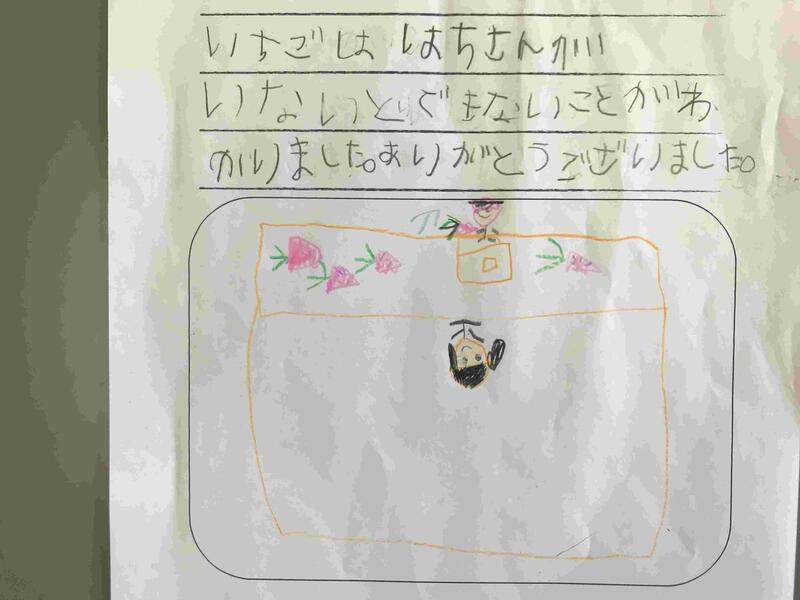 いちごは はちさんが
いないとできないことがわ
かりました。ありがとうございました。